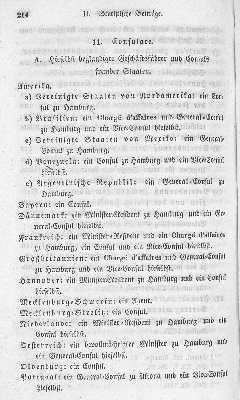 214 II. Statistische Beiträge.
11. Consulate.
A. Hieselbst beglaubigte Geschäftsführer und Consuls
fremder Staaten.
Amerika,
a) Vereinigte Staaten von Nordamerika: ein Consul
zu Hamburg.
b) Brasilien: ein Chargé d'affaires und General-Consul
zu Hamburg und ein Vice-Consul hieselbst.
c) Vereinigte Staaten von Mexiko: ein General-
Consul zu Hamburg.
d) Venezuela: ein Consul zu Hamburg und ein Vice-Consul
hieselbst.
e) Argentinische Republik: ein General-Consul zu
Hamburg.
Bayern: ein Consul.
Dänemark: ein Minister-Resident zu Hamburg und ein Ge-
neral-Consul hieselbst.
Frankreich: ein Minister-Resident und ein Chargé d'affaires
zu Hamburg, ein Consul und ein Vice-Consul hieselbst.
Großbritannien: ein Chargé d'affaires und General-Consul
zu Hamburg und ein Vice-Consul hieselbst.
Hannover: ein Minister-Resident zu Hamburg und ein Consul
hieselbst.
Mecklenburg-Schwerin: ein Agent.
Mecklenburg-Strelitz: ein Consul.
Niederlande: ein Minister-Resident zu Hamburg und ein
Consul hieselbst.
Oesterreich: ein bevollmächtigter Minister zu Hamburg und
ein General-Consul hieselbst.
Oldenburg: ein Consul.
Portugal: ein General-Consul zu Altona und ein Vice-Consul
hieselbst.